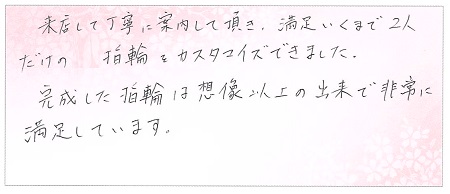 来店して丁寧に案内して頂き、満足いくまで2人
だけの 指輪をカスタマイズできました。
完成した指輪は想像以上の出来で非常に
満足しています。